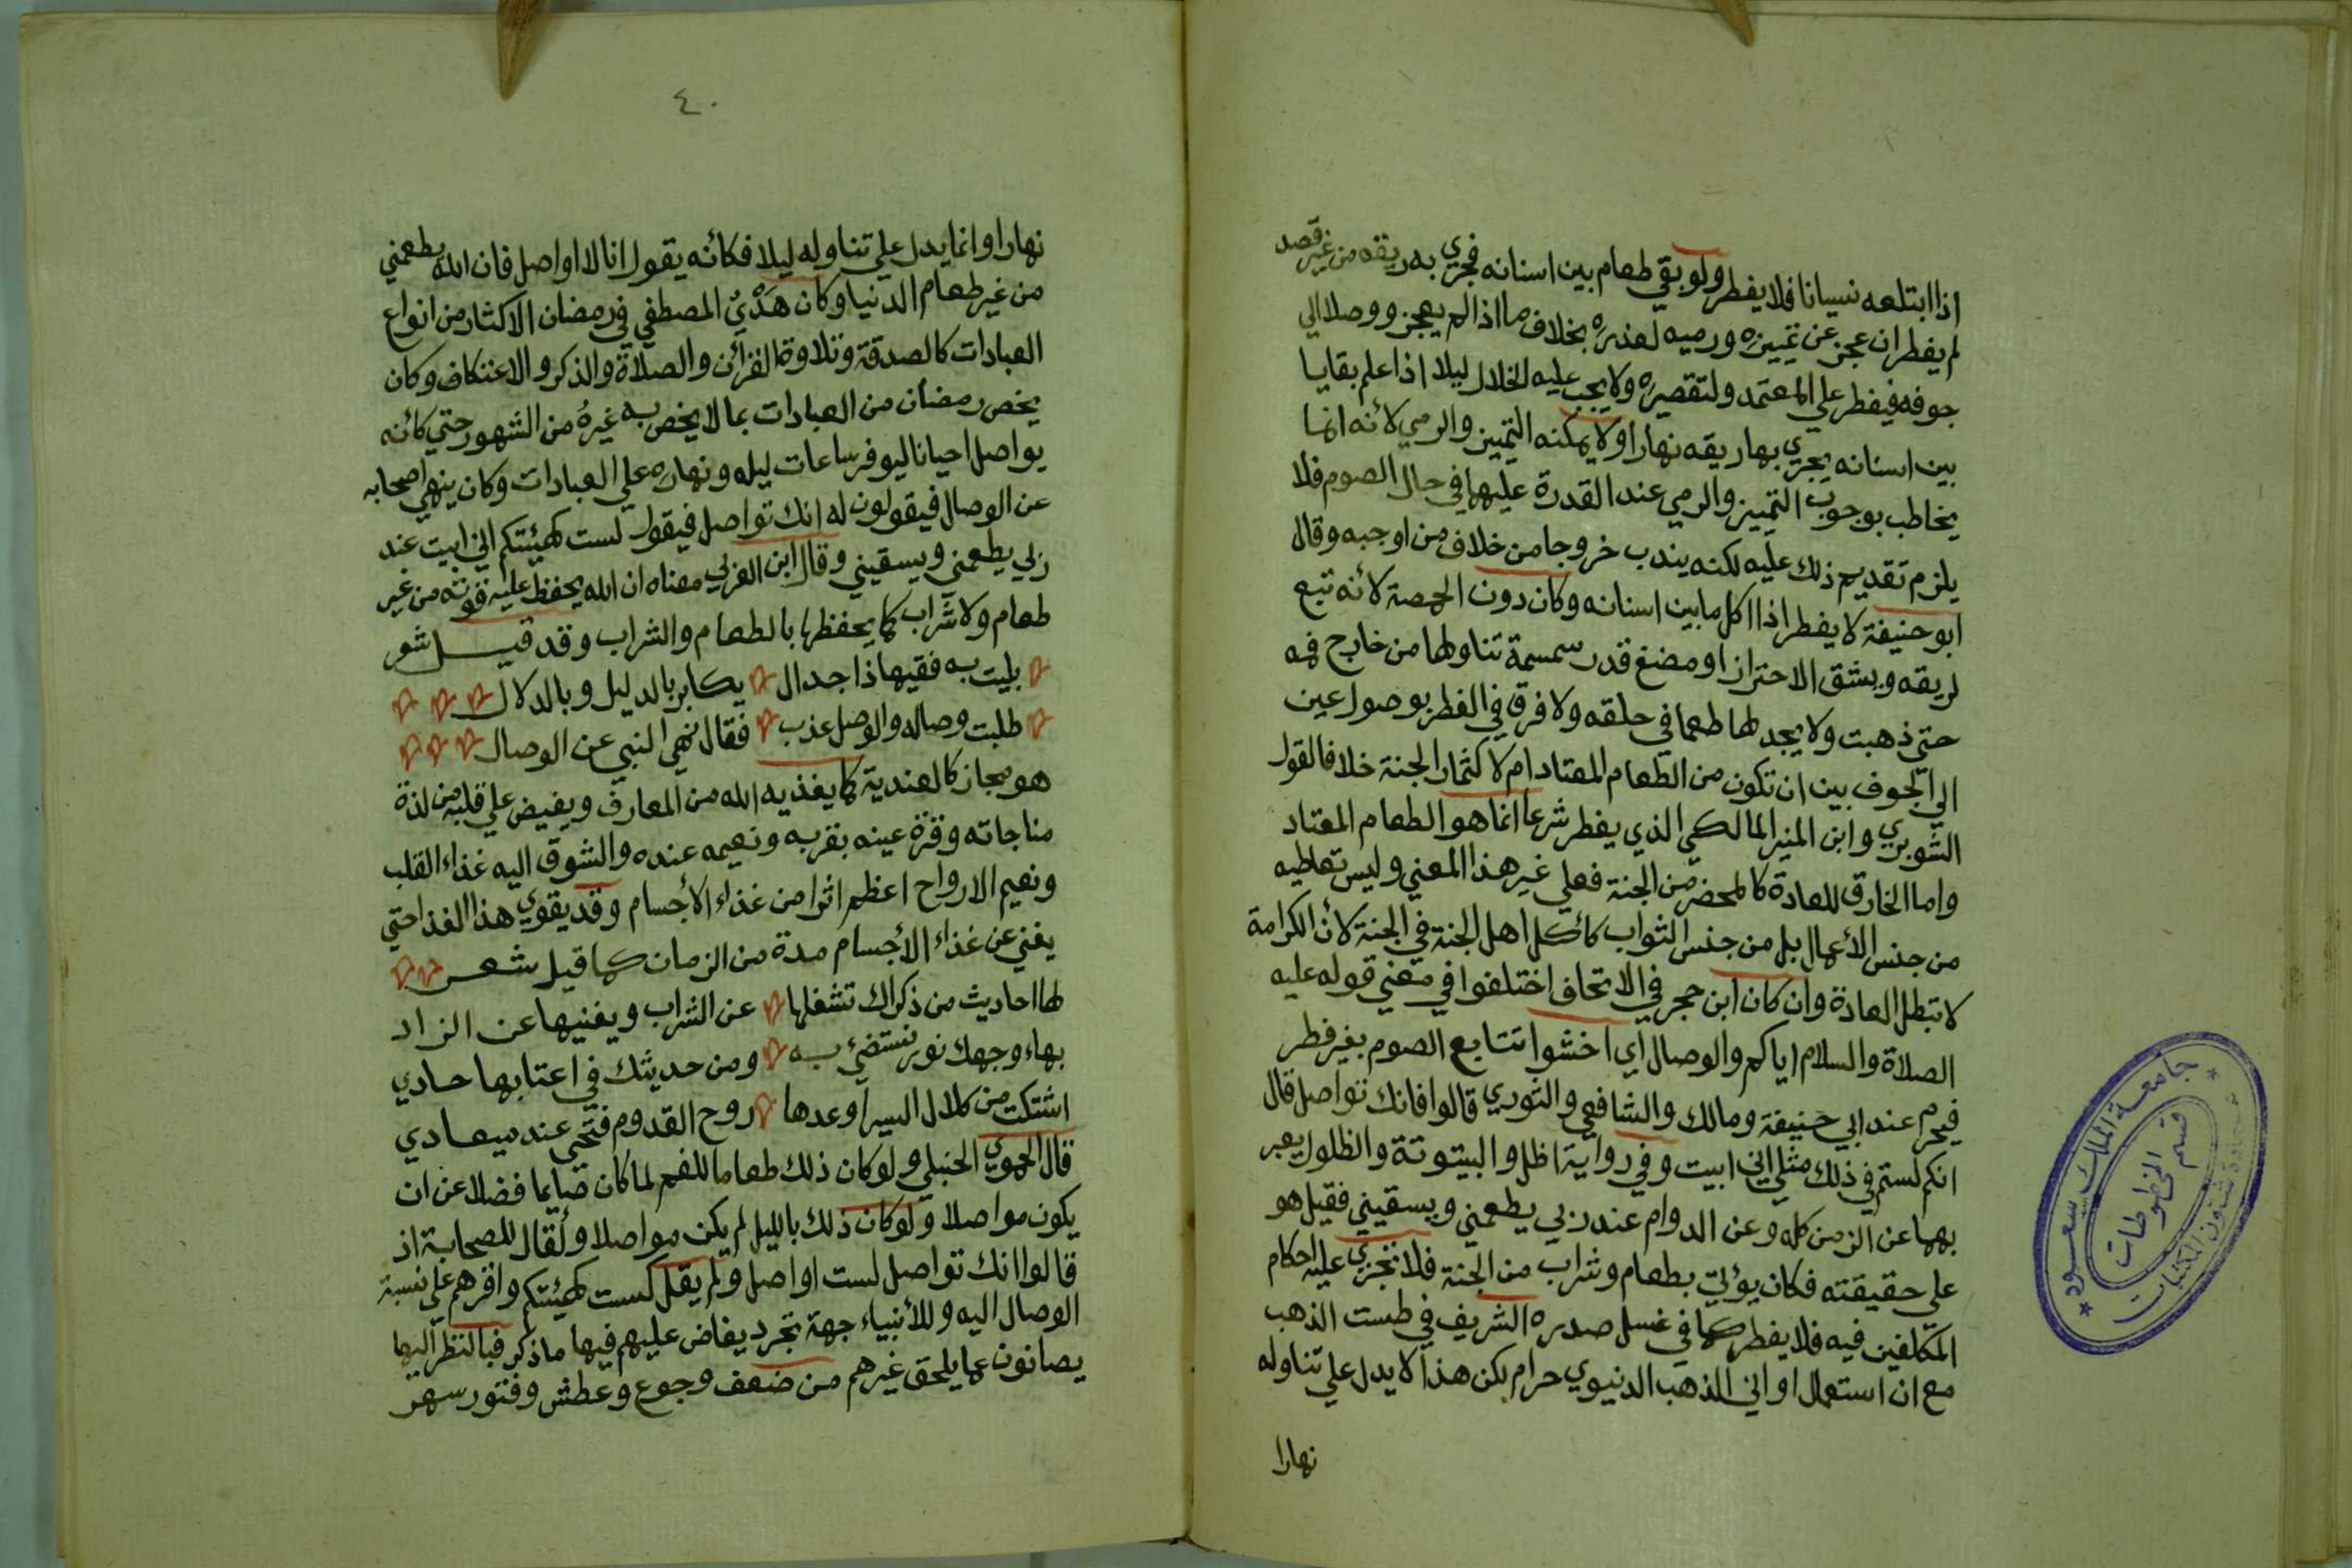 اذا ابتلعه نسيانا فلا يفطر ولو بقي طعام بين اسنانه فجري به ريقه من غير قصد
لم يفطر ان عجز عن تمييزه ورميه لعذره بخلاف ما اذا لم يعجز ووصلا الي
جوفه فيفطر علي المعتمد ولتقصيره ولا يجب عليه الخلال ليلا اذا علم بقايا
بين اسنانه يجري بها ريقه نهارا ولا يمكنه التمييز والرمي لأنه انما
يخاطب بوجوب التمييز والرمي عند القدرة عليهما في حال الصوم فلا
يلزم تقديم ذلك عليه لكنه يندب خروجا من خلاف من اوجبه وقال
ابو حنيفة لا يفطر اذا اكل ما بين اسنانه وكان دون الحمصة لأنه تبع
لريقه ويشق الاحتراز او مضغ قدر سمسمة تناولها من خارج فمه
حتي ذهبت ولا يجد لها طعما في حلقه ولا فرق في الفطر بوصول عين
الي الجوف بين ان تكون من الطعام المعتاد ام لا كثمار الجنة خلافا لقول
الشوبري وابن المنير المالكي الذي يفطر شرعا انما هو الطعام المعتاد
واما الخارق للعادة كالمحضر من الجنة فعلي غير هذا المعني وليس تعاطيه
من جنس الأعمال بل من جنس الثواب كأكل اهل الجنة في الجنة لأن الكرامة
لا تبطل العادة وان كان ابن حجر في الاتحاف اختلفوا في معني قوله عليه
الصلاة والسلام اياكم والوصال اي اخشوا تتابع الصوم بغير فطر
فيحرم عند ابي حنيفة ومالك والشافعي والثوري قالوا فانك تواصل قال
انكم لستم في ذلك مثلي اني ابيت وفي رواية اظل والبيتوتة والظلول يعبر
بهما عن الزمن كله وعن الدوام عند ربي يطعمني ويسقيني فقيل هو
علي حقيقته فكان يؤتي بطعام وشراب من الجنة فلا تجري عليه احكام
المكلفين فيه فلا يفطر كما في غسل صدره الشريف في طست الذهب
مع ان استعمال اواني الذهب الدنيوي حرام لكن هذا لا يدل علي تناوله
نهارا
٤٠
نهارا وانما يدل علي تناوله ليلا فكأنه يقول انا لا اواصل فان الله يطعمني
من غير طعام الدنيا وكان هَدْيُ المصطفي في رمضان الاكثار من انواع
العبادات كالصدقة وتلاوة القرآن والصلاة والذكر والاعتكاف وكان
يخص رمضان من العبادات بما لا يخص به غيرهُ من الشهور حتي كأنه
يواصل احيانا ليوفر ساعات ليله ونهاره علي العبادات وكان ينهي اصحابه
عن الوصال فيقولون له انك تواصل فيقول لست كهيئتكم اني ابيت عند
ربي يطعمني ويسقيني وقال ابن العربي معناه ان الله يحفظ عليه قوته من غير
طعام ولا شراب كما يحفظها بالطعام والشراب وقد قيل شعر
بليت به فقيها ذا جدال يكابر بالدليل وبالدلال
طلبت وصاله والوصل عذب فقال نهي النبي عن الوصال
هو مجاز كالعندية كما يغذيه الله من المعارف ويفيض علي قلبه من لذة
مناجاته وقرة عينه بقربه ونعيمه عنده والشوق اليه غذاء القلب
ونعيم الارواح اعظم اثرا من غذاء الأجسام وقد يقوي هذا الغذا حتي
يغني عن غذاء الأجسام مدة من الزمان كما قيل شعر
لها احاديث من ذكراك تشغلها عن الشراب ويغنيها عن الزاد
بهاء وجهك نور نستضئ به ومن حديثك في اعتابها حادي
اشتكت من كلال السير اوعدها روح القدوم فتحي عند ميعادي
قال الحموي الحنبلي ولو كان ذلك طعاما للفم لما كان صايما فضلا عن ان
يكون مواصلا ولو كان ذلك بالليل لم يكن مواصلا ولقال للصحابة اذ
قالوا انك تواصل لست اواصل ولم يقل لست كهيئتكم واقرهم علي نسبة
الوصال اليه وللأنبياء جهة تجرد يفاض عليهم فيها ما ذكر فبالنظر اليها
يصانون عما يلحق غيرهم من ضعف وجوع وعطش وفتور سهر
جامعة الملك سعود
عمادة شئون المكتبات
قسم المخطوطات